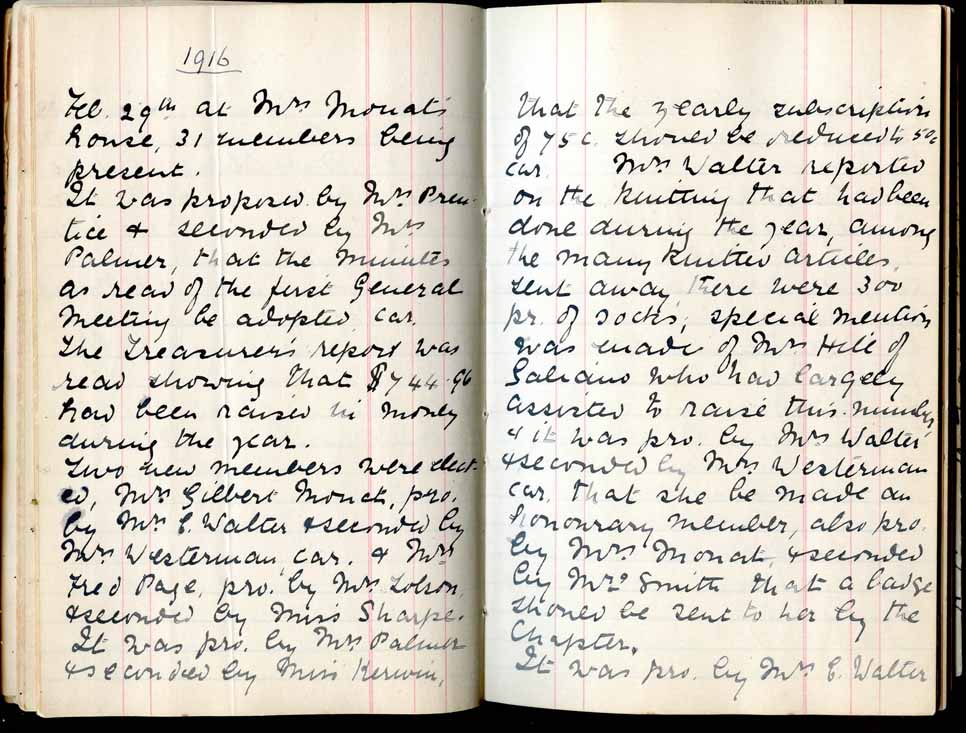 1916
Feb. 29th at Mrs Monat's
house, 31 members being
present.
It was proposed by Mrs Pren-
tice & seconded by Mrs
Palmer, that the minutes
as read of the first General
Meeting be adopted, car.
The Treasurer's report was
read showing that $744.96
had been raised in money
during the year.
Two new members were elect-
ed, Mrs Gilbert Mouat, pro.
by Mrs E. Walter & seconded by
Mrs Westerman, car. & Mrs
Fred Page, pro. by Mrs Tolson,
& seconded by Miss Sharpe.
It was pro. by Mrs Palmer
& seconded by Miss Kerwin,
that the yearly subscription
of 75c. should be reduced to 50c
car. Mrs Walter reported
on the knitting that had been
done during the year, among
the many knitted articles,
sent away, there were 300
pr. of socks, special mention
was made of Mrs Hill of
Galiano who had largely
assisted to raise this number,
& it was pro. by Mrs Walter
& seconded by Mrs Westerman
car. that she be made an
honourary member, also pro.
by Mrs Monat, & seconded
by Mrs Smith that a badge
should be sent to her by the
Chapter.
It was pro. by Mrs E. Walter